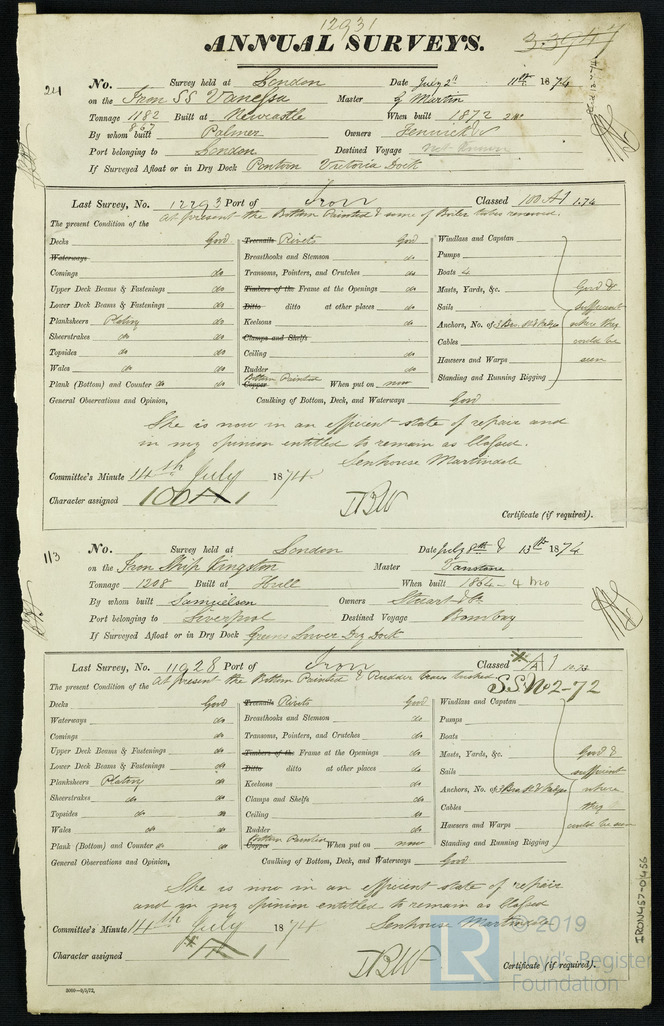 12931
ANNUAL SURVEYS.
241
No. Survey held at London Date July 2d 11th 1874
on the Iron SS Vanessa Master G Martin
Tonnage 1182 Built at Newcastle When built 1872 2
867
By whom built Palmer Owners Fenwick
Port belonging to London Destined Voyage not known
If Surveyed Afloat or in Dry Dock Pontoon Victoria Dock
Last Survey, No. 12293 Port of Iron Classed 100 A1 1.74
The present Condition of the At present the Bottom Painted & some of Boiler tubes renewed.
Decks Good Treenails Rivets Good Windlass and Capstan
Waterways Breasthooks and Stemson do Pumps
Comings do Transoms, Pointers, and Crutches do Boats 4
Upper Deck Beams & Fastenings do Timbers of the Frame at the Openings do Masts, Yards, &c. Good &
Lower Deck Beams & Fastenings do Ditto ditto at other places do Sails sufficient
Planksheers Plating do Keelsons do Anchors, No. of where they
Sheerstrakes do do Clamps and Shelfs Cables could be
Topsides do do Ceiling do Hawsers and Warps seen
Wales do do Rudder do Standing and Running Rigging
Plank (Bottom) and Counter do do Bottom Painted Copper When put on now
General Observations and Opinion, Caulking of Bottom, Deck, and Waterways Good
She is now in an efficient state of repair and
in my opinion entitled to remain as Classed.
Committee's Minute 14th July 1874 Senhouse Martindale
Character assigned 100 A 1
Certificate (if required).
113
No. Survey held at London Date July 8th & 13th 1874
on the Iron Ship Kingston Master Vanstone
Tonnage 1208 Built at Hull When built 1864 - 4 mo
By whom built Samuelson Owners Stuart & Co
Port belonging to Liverpool Destined Voyage Bombay
If Surveyed Afloat or in Dry Dock Greens Lower Dry Dock
Last Survey, No. 11928 Port of Iron Classed A 1
SS No 2-72
The present Condition of the At present the Bottom Painted & Rudder
Decks Good Treenails Rivets Good Windlass and Capstan
Waterways do Breasthooks and Stemson do Pumps
Comings do Transoms, Pointers, and Crutches do Boats
Upper Deck Beams & Fastenings do Timbers of the Frame at the Openings do Masts, Yards, &c. Good &
Lower Deck Beams & Fastenings do Ditto ditto at other places do Sails sufficient
Planksheers Plating do Keelsons do Anchors, No. of where
Sheerstrakes do do Clamps and Shelfs do Cables they
Topsides do do Ceiling do Hawsers and Warps could be seen
Wales do do Rudder do Standing and Running Rigging
Plank (Bottom) and Counter do do Bottom Painted Copper When put on now
General Observations and Opinion, Caulking of Bottom, Deck, and Waterways Good
She is now in an efficient state of repair
and in my opinion entitled to remain as Classed
Committee's Minute 14th July 1874 Senhouse Martindale
Character assigned A 1
Certificate (if required).
IRON457-0456
LR © 2019
Lloyd's Register
Foundation